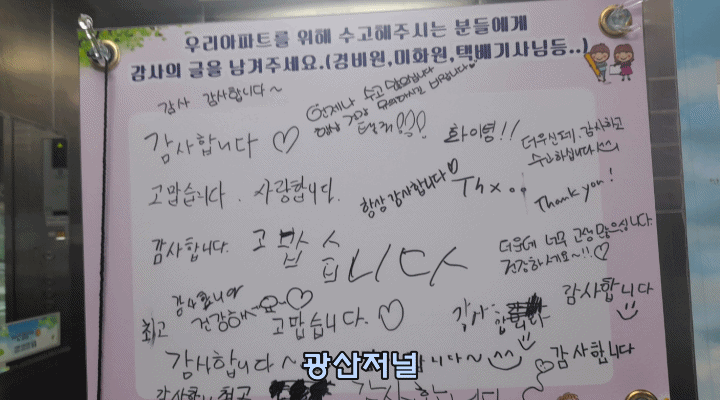 우리아파트를 위해 수고해주시는 분들에게
감사의 글을 남겨주세요.(경비원,미화원,택배기사님등..)
감사 감사합니다~
언제나 수고 많으십니다
항상 건강
감사합니다 ♡
화이팅!!
더우신데 감사하고
수고하십니다
고맙습니다. 사랑합니다.
항상 감사합니다♡
Thx..
Thank you!
감사합니다.
고맙습니다
더운데 너무 고생 많으십니다.
건강하세요~!! ♡
감사합니다
최고
건강하세요~♡
고맙습니다. ♡
감사합니다
감사합니다
감사합니다~
합니다~^^
♡감사합니다
최고
광산저널